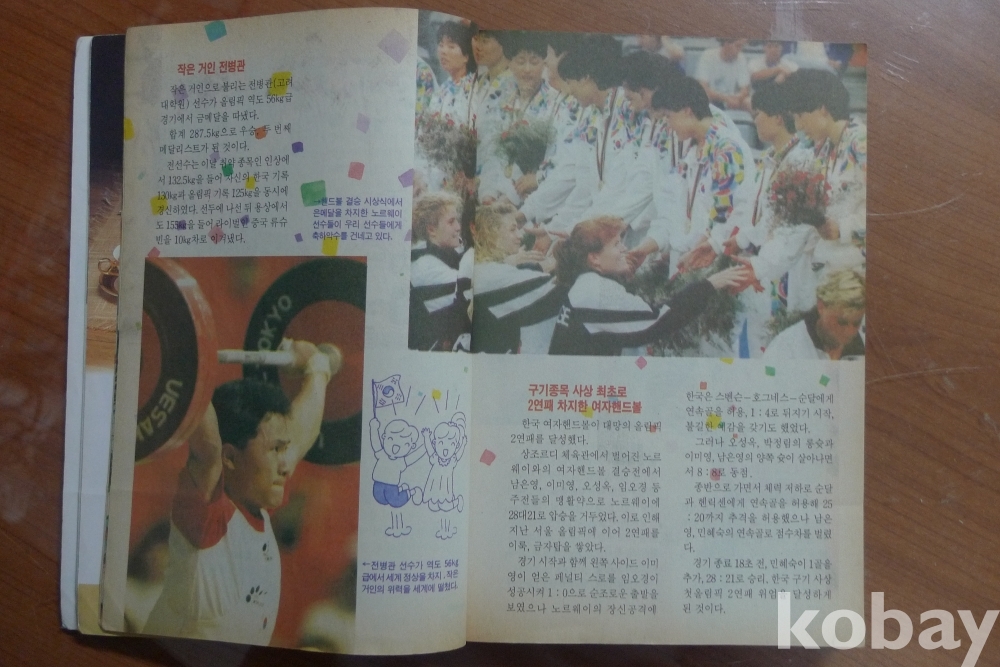 작은 거인 전병관
작은 거인으로 불리는 전병관(고려
대학원) 선수가 올림픽 역도 56kg급
경기에서 금메달을 따냈다.
합계 287.5kg으로 우승, 두 번째
메달리스트가 된 것이다.
전선수는 이날 취약 종목인 인상에
서 132.5kg을 들어 자신의 한국 기록
130kg과 올림픽 기록 125kg을 동시에
경신하였다. 선두에 나선 뒤 용상에서
도 155kg을 들어 라이벌인 중국 류슈
빈을 10kg차로 이겨냈다.
→핸드볼 결승 시상식에서
은메달을 차지한 노르웨이
선수들이 우리 선수들에게
축하악수를 건네고 있다.
UESAKA
TOKYO
←전병관 선수가 역도 56kg
급에서 세계 정상을 차지, 작은
거인의 위력을 세계에 떨쳤다.
구기종목 사상 최초로
2연패 차지한 여자핸드볼
한국 여자핸드볼이 대망의 올림픽
2연패를 달성했다.
상조르디 체육관에서 벌어진 노르
웨이와의 여자핸드볼 결승전에서
남은영, 이미영, 오성옥, 임오경 등
주전들의 맹활약으로 노르웨이에
28대21로 압승을 거두었다. 이로 인해
지난 서울 올림픽에 이어 2연패를
이룩, 금자탑을 쌓았다.
경기 시작과 함께 왼쪽 사이드 이미
영이 얻은 페널티 스로를 임오경이
성공시켜 1 : 0으로 순조로운 출발을
보였으나 노르웨이의 장신공격에
한국은 스벤슨–호그네스–순달에게
연속골을 허용, 1 : 4로 뒤지기 시작,
불길한 예감을 갖기도 했었다.
그러나 오성옥, 박정림의 롱슛과
이미영, 남은영의 양쪽 슛이 살아나면
서 8 : 8로 동점.
종반으로 가면서 체력 저하로 순달
과 헨릭센에게 연속골을 허용해 25
: 20까지 추격을 허용했으나 남은
영, 민혜숙의 연속골로 점수차를 벌렸
다.
경기 종료 18초 전, 민혜숙이 1골을
추가, 28 : 21로 승리, 한국 구기 사상
첫올림픽 2연패 위업을 달성하게
된 것이다.
kobay